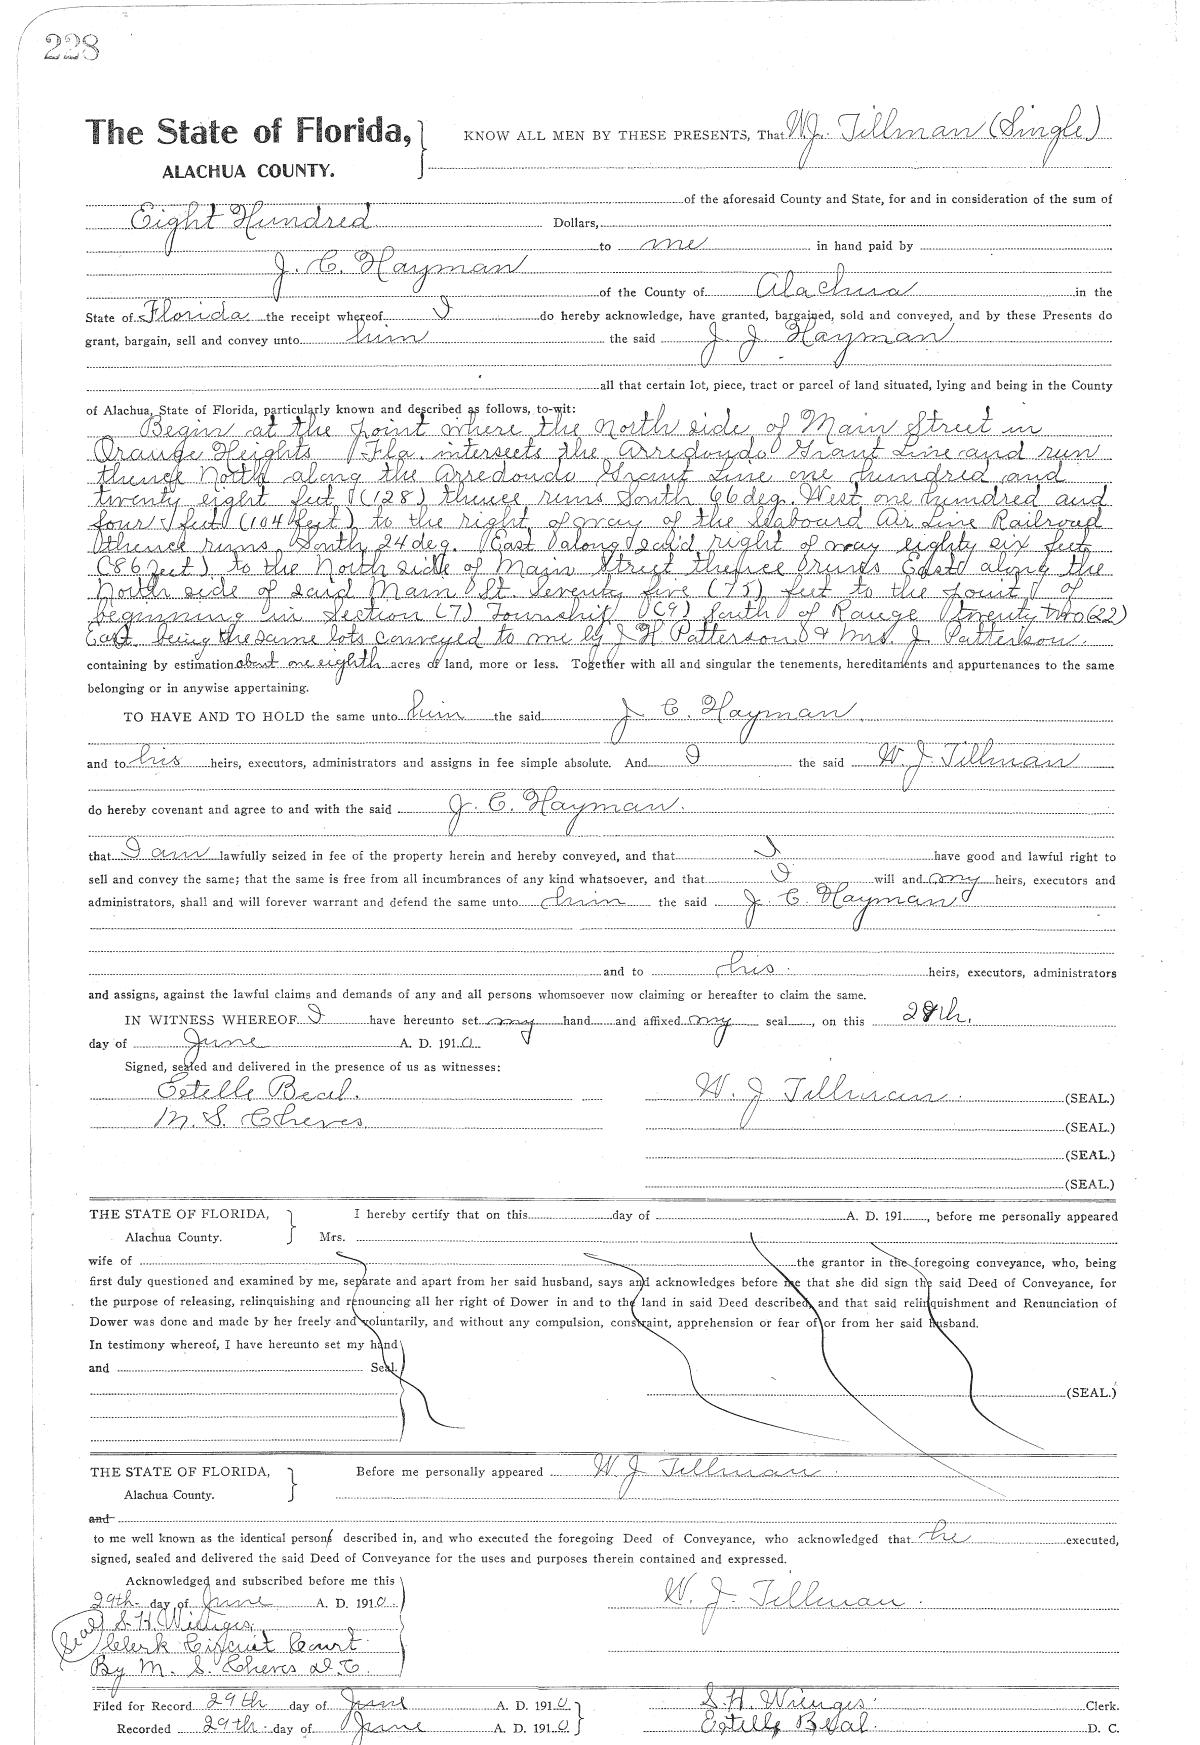 228
The State of Florida, KNOW ALL MEN BY THESE PRESENTS, That W.J. Tillman (Single)
ALACHUA COUNTY.
of the aforesaid County and State, for and in consideration of the sum of
Eight Hundred Dollars,
to me in hand paid by
J. C. Hayman
of the County of Alachua in the
State of Florida the receipt whereof I do hereby acknowledge, have granted, bargained, sold and conveyed, and by these Presents do
grant, bargain, sell and convey unto him the said J. J. Hayman
all that certain lot, piece, tract or parcel of land situated, lying and being in the County
of Alachua, State of Florida, particularly known and described as follows, to-wit:
Begin at the point where the North side of Main Street in
Orange Heights Fla. intersects the Arredondo Grant Line and run
thence North along the Arredondo Grant Line one hundred and
twenty eight feet (128) thence runs South 66 deg. West one hundred and
four feet (104 feet) to the right of way of the Seaboard Air Line Railroad
thence runs South 24 deg. East along said right of way eighty six feet
(86 feet) to the North side of Main Street thence runs East along the
North side of said Main St. Seventy five (75) feet to the point of
beginning in Section (7) Township (9) South of Range twenty two (22)
East. being the same lots conveyed to me by J H Patterson & Mrs. J. Patterson.
containing by estimation about one eighth acres of land, more or less. Together with all and singular the tenements, hereditaments and appurtenances to the same
belonging or in anywise appertaining.
TO HAVE AND TO HOLD the same unto him the said J C. Hayman.
and to his heirs, executors, administrators and assigns in fee simple absolute. And I the said W. J. Tillman
do hereby covenant and agree to and with the said J. C. Hayman.
that I am lawfully seized in fee of the property herein and hereby conveyed, and that I have good and lawful right to
sell and convey the same; that the same is free from all incumbrances of any kind whatsoever, and that I will and my heirs, executors and
administrators, shall and will forever warrant and defend the same unto him the said J. C. Hayman
and to his heirs, executors, administrators
and assigns, against the lawful claims and demands of any and all persons whomsoever now claiming or hereafter to claim the same.
IN WITNESS WHEREOF I have hereunto set my hand and affixed my seal, on this 28th.
day of June A. D. 1910.
Signed, sealed and delivered in the presence of us as witnesses:
Estelle Beal. W. J Tillman. (SEAL.)
M. S. Cheves (SEAL.)
(SEAL.)
(SEAL.)
THE STATE OF FLORIDA, I hereby certify that on this day of A. D. 191, before me personally appeared
Alachua County. Mrs.
wife of the grantor in the foregoing conveyance, who, being
first duly questioned and examined by me, separate and apart from her said husband, says and acknowledges before me that she did sign the said Deed of Conveyance, for
the purpose of releasing, relinquishing and renouncing all her right of Dower in and to the land in said Deed described, and that said relinquishment and Renunciation of
Dower was done and made by her freely and voluntarily, and without any compulsion, constraint, apprehension or fear of or from her said husband.
In testimony whereof, I have hereunto set my hand
and Seal.
(SEAL.)
THE STATE OF FLORIDA, Before me personally appeared W J Tillman.
Alachua County.
and
to me well known as the identical person described in, and who executed the foregoing Deed of Conveyance, who acknowledged that he executed,
signed, sealed and delivered the said Deed of Conveyance for the uses and purposes therein contained and expressed.
Acknowledged and subscribed before me this
29th day of June A. D. 1910. W. J. Tillman.
(Seal) S. H. Wienges.
Clerk Circuit Court
By M. S. Cheves D.C.
Filed for Record 29th day of June A. D. 1910 S. H. Wienges. Clerk.
Recorded 29th day of June A. D. 1910 Estelle Beal. D. C.